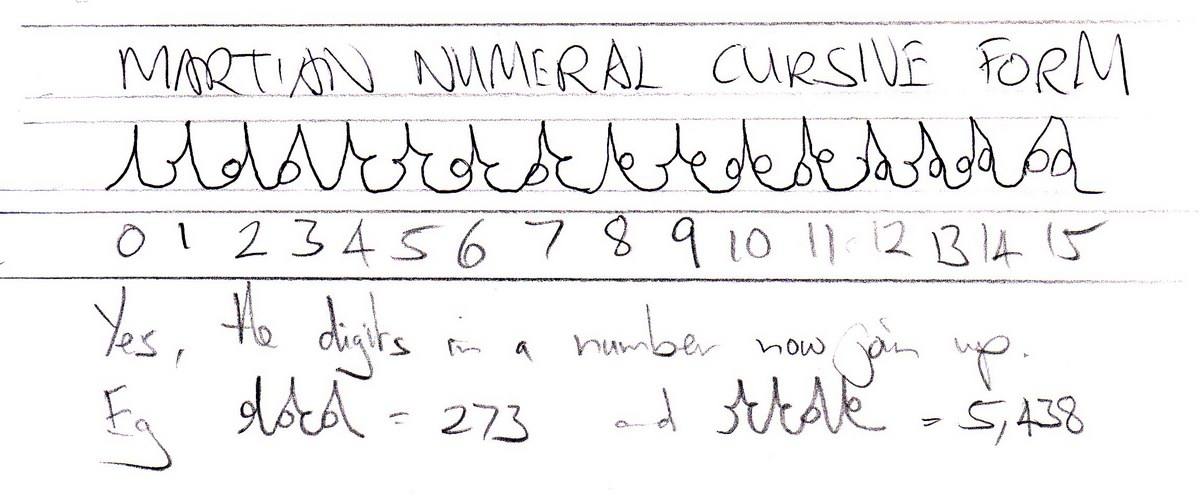 MARTIAN NUMERAL CURSIVE FORM
0 1 2 3 4 5 6 7 8 9 10 11 12 13 14 15
Yes, the digits in a number now join up.
Eg = 273 and = 5,438